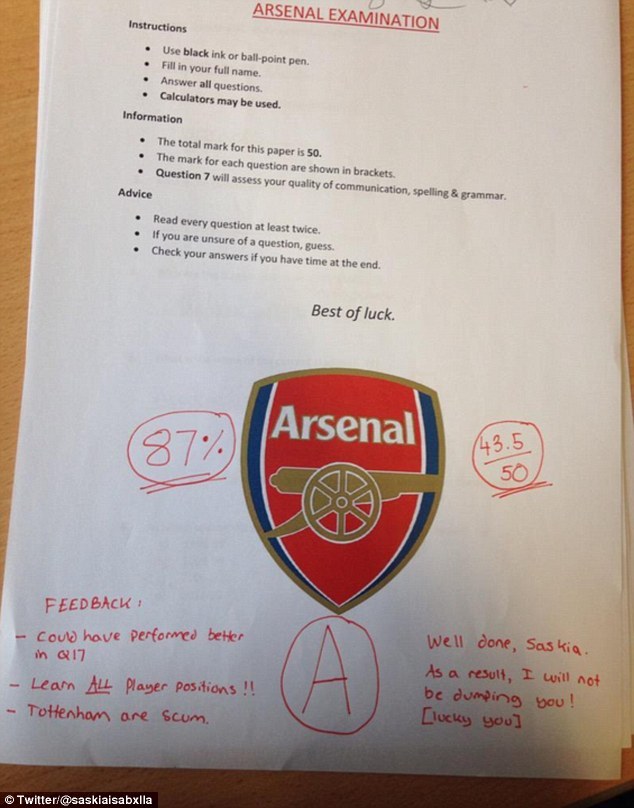 ARSENAL EXAMINATION
Instructions
• Use black ink or ball-point pen.
• Fill in your full name.
• Answer all questions.
• Calculators may be used.
Information
• The total mark for this paper is 50.
• The mark for each question are shown in brackets.
• Question 7 will assess your quality of communication, spelling & grammar.
Advice
• Read every question at least twice.
• If you are unsure of a question, guess.
• Check your answers if you have time at the end.
Best of luck.
Arsenal
87%
43.5
50
FEEDBACK:
- Could have performed better
in Q17
- Learn ALL Player positions!!
- Tottenham are scum.
A
Well done, Saskia.
As a result, I will not
be dumping you!
[lucky you]
© Twitter/@saskiaisabxlla